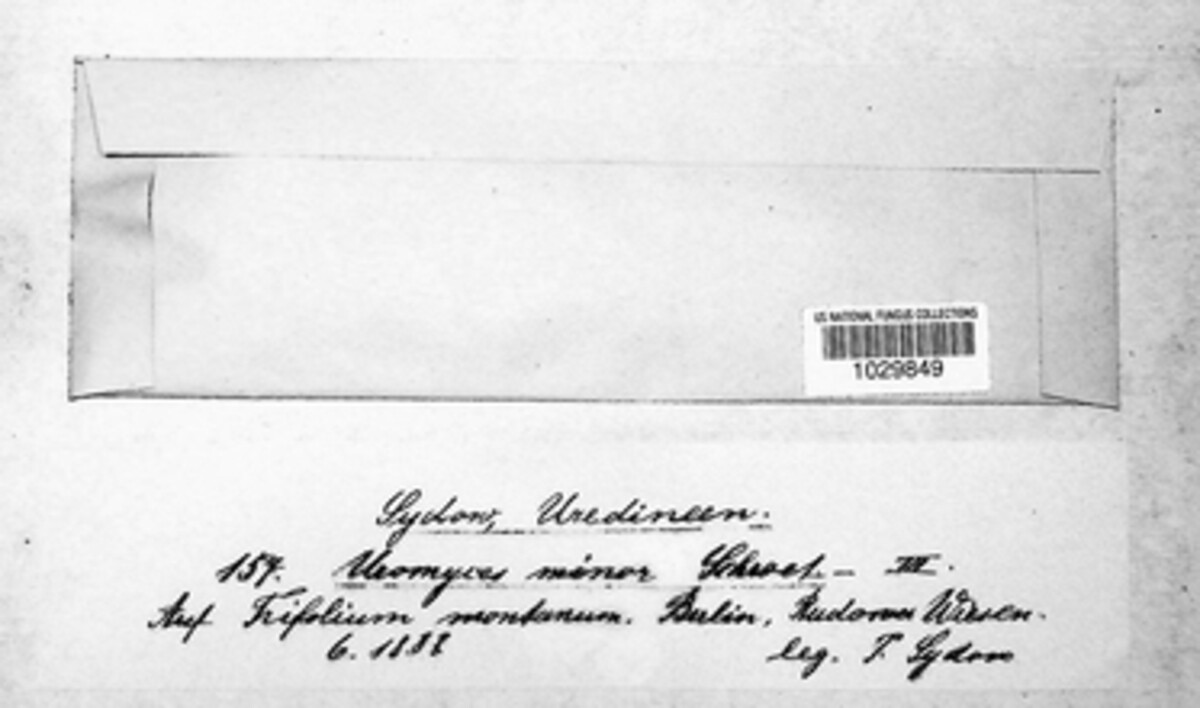 US NATIONAL FUNGUS COLLECTIONS
1029849
Sydow, Uredineen.
157. Uromyces minor Schroet. – III.
Auf Trifolium montanum. Berlin, Rudower Wiesen.
6. 1888 leg. P. Sydow